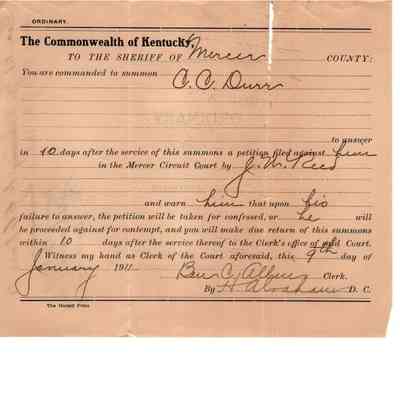 ORDINARY.
The Commonwealth of Kentucky,
TO THE SHERIFF OF Mercer COUNTY:
You are commanded to summon
C. C. Durr
to answer
in 10 days after the service of this summons a petition filed against him
in the Mercer Circuit Court by J. W. Reed
and warn him that upon his
failure to answer, the petition will be taken for confessed, or he will
be proceeded against for contempt, and you will make due return of this summons
within 10 days after the service thereof to the Clerk's office of said Court.
Witness my hand as Clerk of the Court aforesaid, this 9th day of
January 1911 Ben C. Allin Clerk.
By H. Abraham D. C.
The Herald Press